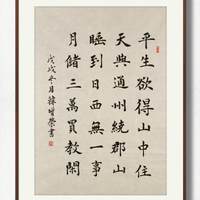 平生欲得山中住
天與通州繞郡山
睡到日西無一事
月儲三萬買教閑
戊戌冬月 增榮書